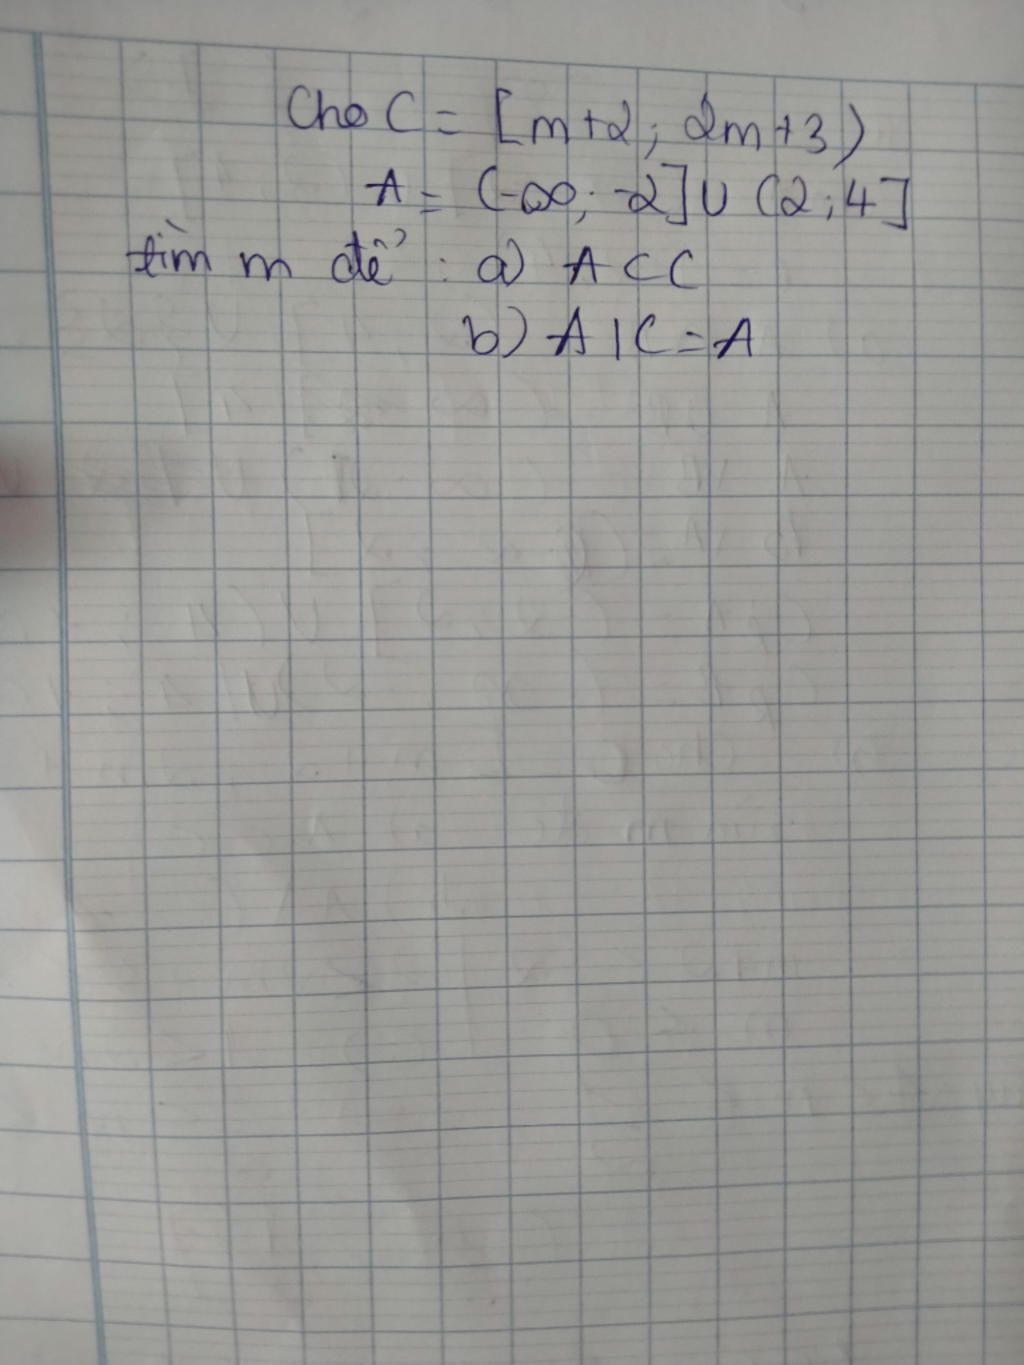 Cho C = [m+2; 2m+3)
A = (-∞; -2] ∪ (2;4]
tìm m để : a) A ⊂ C
b) A \ C = A